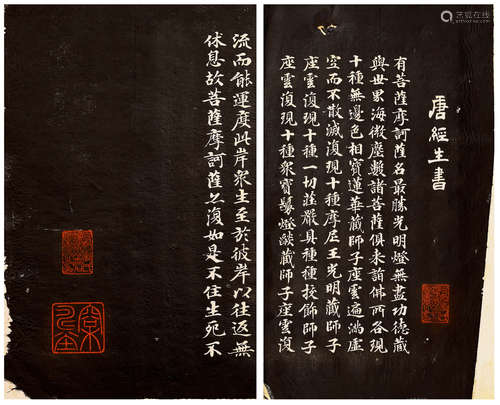 唐經生書
有菩薩摩訶薩名最勝光明燈無盡功德藏
與世界海微塵數諸菩薩俱來詣佛所各現
十種無邊色相寶蓮華藏師子座雲遍滿虛
空而不散滅復現十種摩尼王光明藏師子
座雲復現十種一切莊嚴具種種挍飾師子
座雲復現十種衆寶鬘燈燄藏師子座雲復
流而能運度此岸衆生至於彼岸以往返無
休息故菩薩摩訶薩亦復如是不住生死不